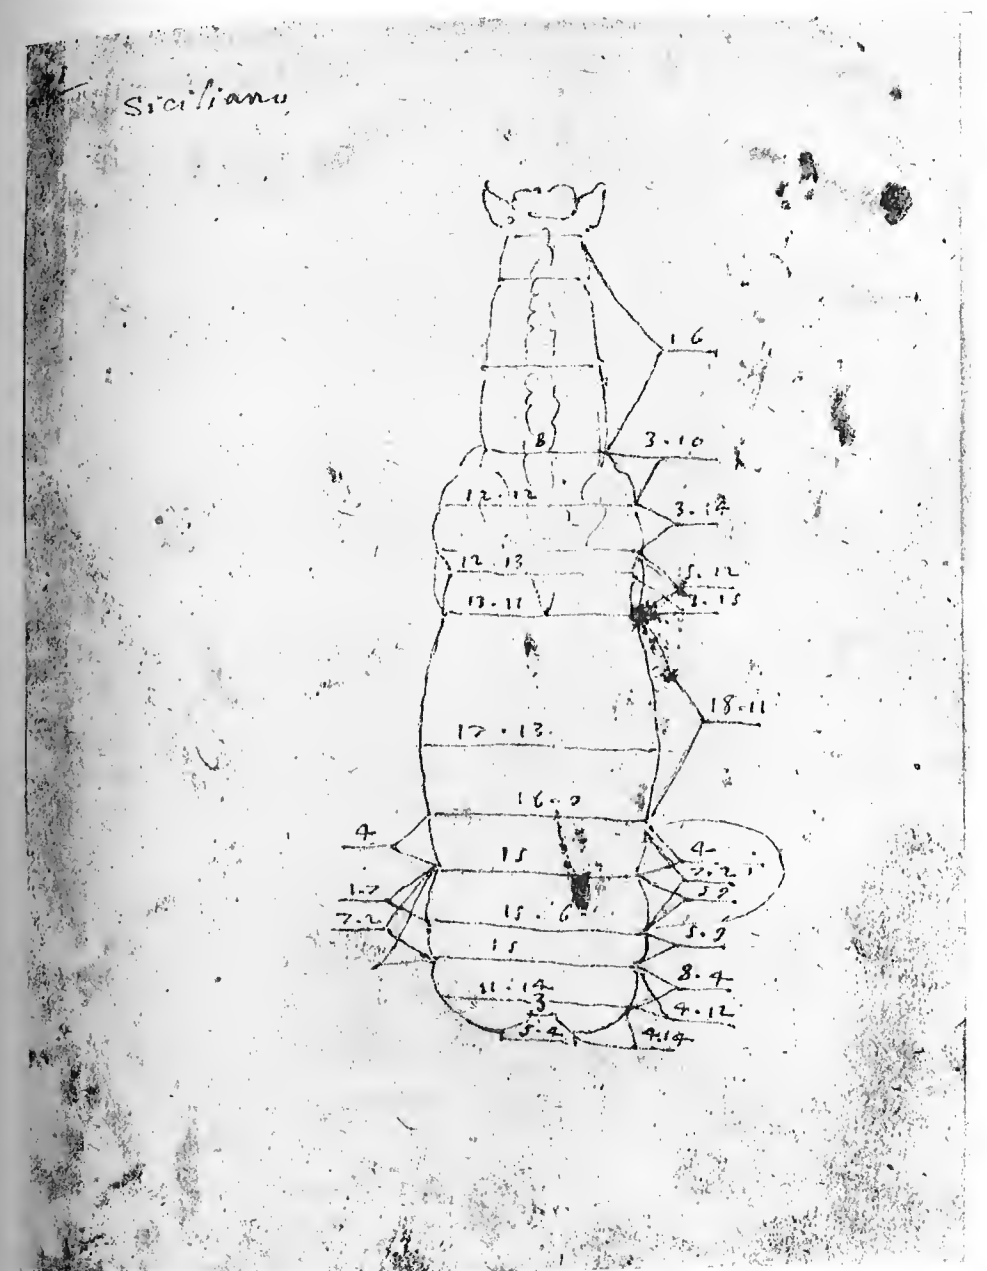 Siciliano
1 6
8
3.10
12.12
3.14
12.13
5.12
13.11
3.15
18.11
17.13
16.
4
4
15
7.2
1.7
5.7
7.2
15.6
5.7
15
8.4
11.14
3
4.12
5.4
4.14